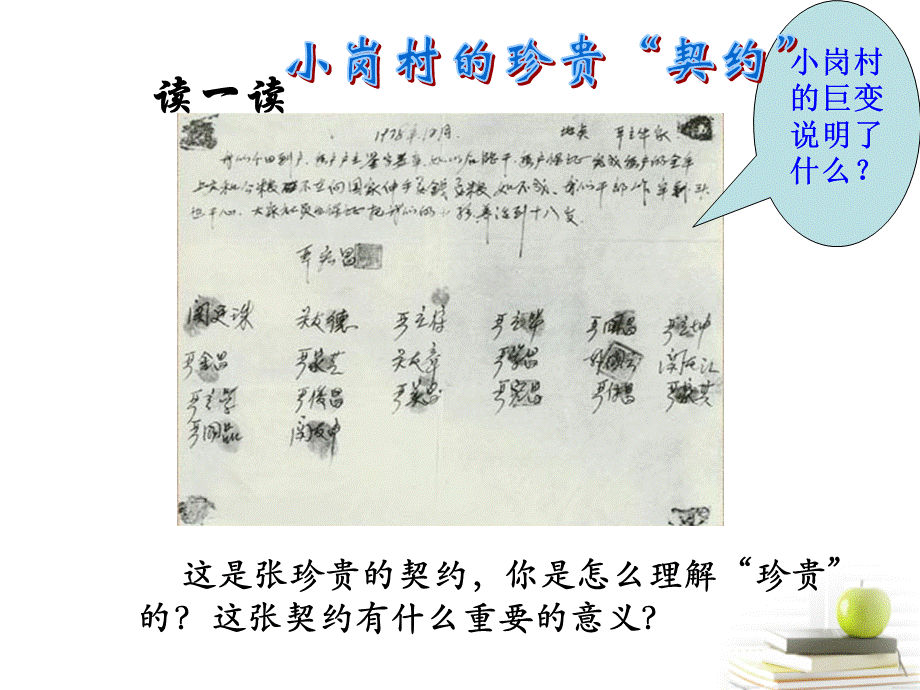 小岗村的珍贵“契约”
读一读
小岗村
的巨变
说明了
什么？
1978年12月. 地点 严立华家
我们分田到户，每户户主签字盖章，如以后能干，每户保证完成每户的全年
上交和公粮不在向国家伸手要钱要粮，如不成，我们干部作牢刹头
也干心，大家社员也保证把我们的小孩养活到十八岁
严宏昌
关友德 严立华 严立坤
严金昌 严家芝 关友章 严学昌 关友江
严立学 严俊昌 严美昌
关友申
这是张珍贵的契约，你是怎么理解“珍贵”
的？这张契约有什么重要的意义?